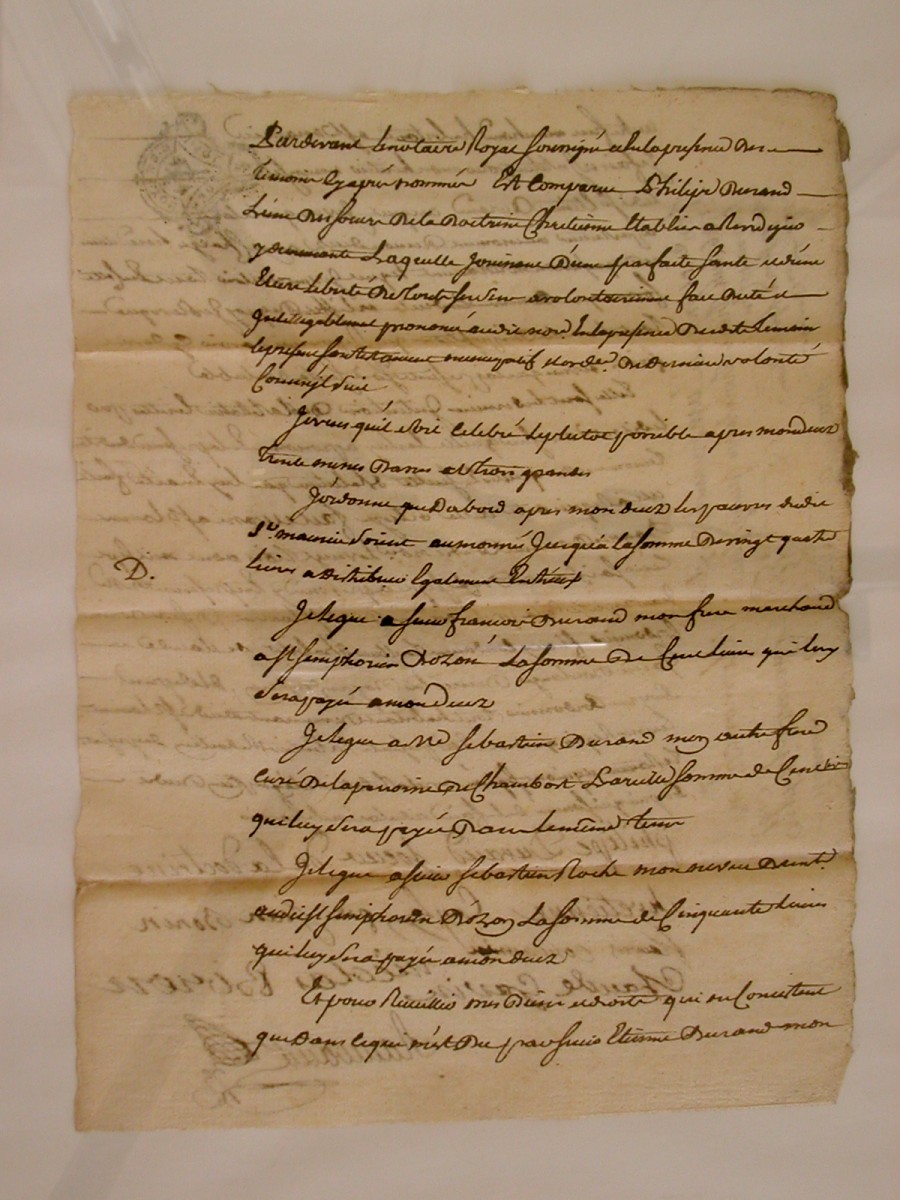 Pardevant le notaire Royal soussigné et la presence des
temoins cy apres nommés Est Comparue Philipe Durand
l'une des soeurs De la Doctrine Chretienne Etablie a
y demeurante Laquelle Jouissant D'une parfaite santé et d'une
Entiere liberté De tout ses sens a volontairement fait dicté
et intelligiblement prononcé audit no.re En la presence Desdits temoins
le present son testament nuncupatif et ord.ce De derniere volonté
Comme s'il suit
Je veux qu'il soit Celebré le plutot possible apres mon deces
trente messes basses et trois grandes
J'ordonne que D'abord apres mon deces les pauvres dudit
St maurice soient aumonnés Jusqu'a la somme De vingt quatre
livres a Distribuer Egalement Entr'eux
D.
Je legue a sieur francois Durand mon frere marchand
a St Simphorien D'ozon La somme De Cent livres qui luy
sera payée a mon deces
Je legue a Mre Sebastien Durand mon autre frere
curé De la paroisse de Chambost Pareille somme de Cent livres
qui luy sera payée Dans le même tems
Je legue a sieur Sebastien Roche mon neveu
audit St Simphorien D'ozon La somme de Cinquante livres
qui luy sera payée a mon deces
Et pour Recueillir mes Biens et droits qui ne Consistent
que Dans ce qui m'est Du par sieur Etienne Durand mon